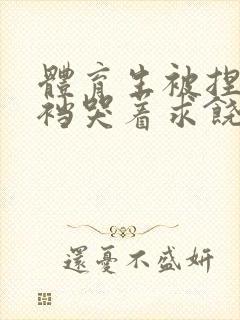 體育生被捏
襠哭着求饒
還憂不盛妍